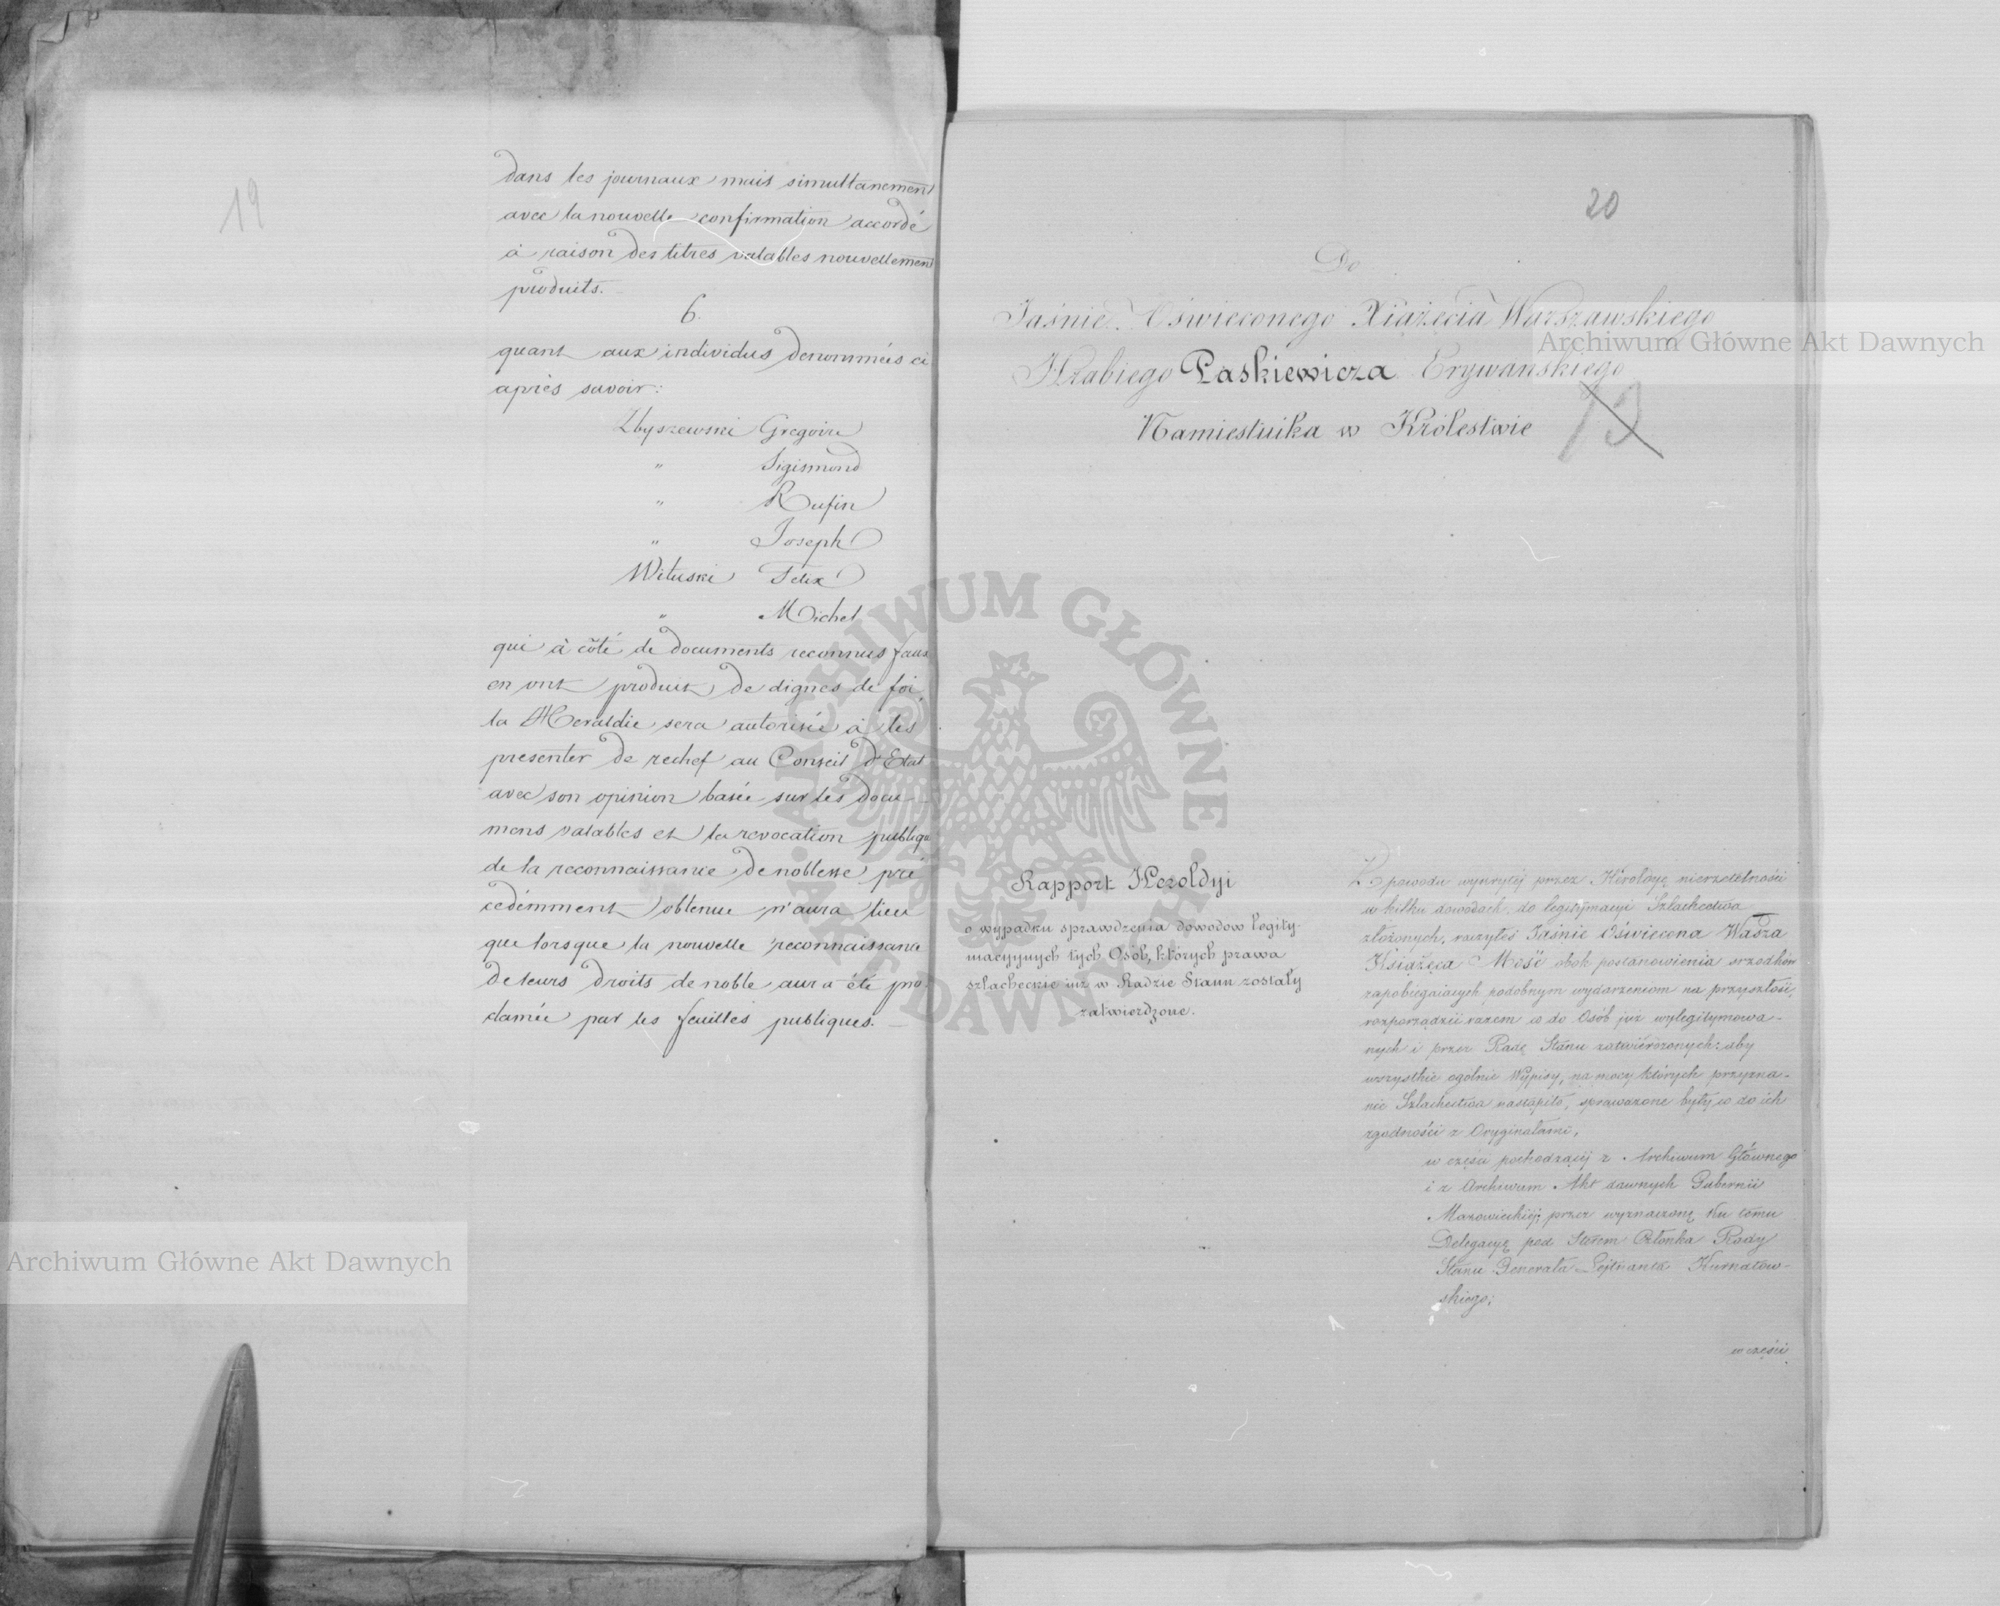 19
dans les journaux mais simultanement
avec la nouvelle confirmation accordé
à raison des titres valables nouvellement
produits.
6.
quant aux individus denommés ci
après savoir:
Zbyszewski Gregoire
" Sigismond
" Rufin
" Joseph
Wituski Felix
" Michel
qui à côté de documents reconnus faux
en ont produit de dignes de foi,
la Heraldie sera autorisée à les
presenter de rechef au Conseil d'Etat
avec son opinion basée sur les docu-
mens valables et la revocation publique
de la reconnaissance de noblesse pré
cédemment obtenue n'aura lieu
que lorsque la nouvelle reconnaissance
de leurs droits de noble aura été pro
clamée par les feuilles publiques.
20
Do
Jaśnie Oświeconego Xiążęcia Warszawskiego
Hrabiego Paskiewicza Erywańskiego
Namiestnika w Królestwie
13
Rapport Heroldyi
o wypadku sprawdzenia dowodow legity-
macyjnych tych Osób, których prawa
szlacheckie już w Radzie Stanu zostały
zatwierdzone.
Z powodu wykrytéj przez Heroldyę nierzetelności
w kilku dowodach do legitymacyi Szlachectwa
złożonych, raczyłeś Jaśnie Oświecona Wasza
Książęca Mość obok postanowienia srzodków
zapobiegaiących podobnym wydarzeniom na przyszłość,
rozporządzić razem co do Osób już wylegitymowa-
nych i przez Radę Stanu zatwierdzonych: aby
wszystkie ogólnie Wypisy, na mocy których przyzna-
nie Szlachectwa nastąpiło, sprawdzone były co do ich
zgodności z Oryginałami,
w części pochodzącéj z Archiwum Głównego
i z Archiwum Akt dawnych Gubernii
Mazowieckiéj; przez wyznaczoną ku temu
Delegacyę pod Sterem Członka Rady
Stanu Generała Lejtnanta Kurnatow-
skiego;
w części
Archiwum Główne Akt Dawnych
Archiwum Główne Akt Dawnych
ARCHIWUM GŁÓWNE AKT DAWNYCH